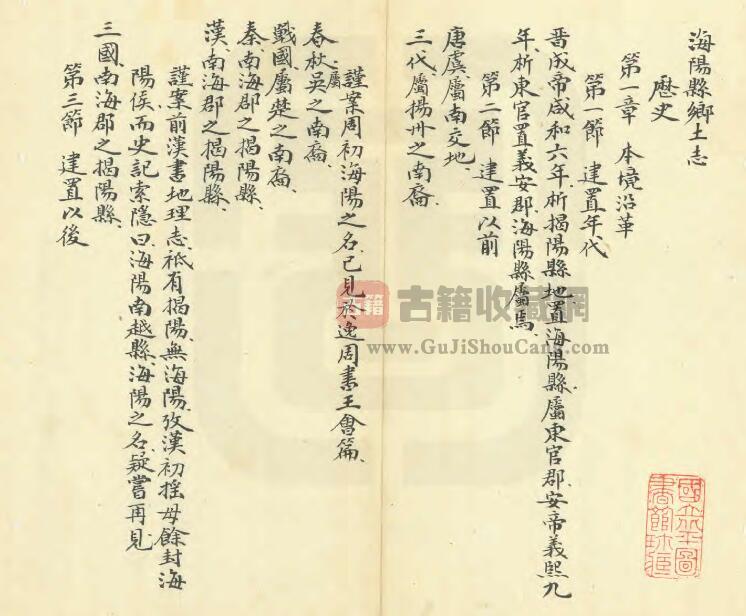 海陽縣鄉土志
歷史
第一章 本境沿革
第一節 建置年代
晉成帝咸和六年、析揭陽縣地、置海陽縣、屬東官郡、安帝義熙九
年、析東官置義安郡、海陽縣屬焉、
第二節 建置以前
唐虞屬南交地、
三代屬揚州之南裔、
謹案周初海陽之名、已見於逸周書王會篇、
春秋屬吳之南裔、
戰國屬楚之南裔、
秦、南海郡之揭陽縣、
漢、南海郡之揭陽縣、
謹案前漢書地理志、祇有揭陽、無海陽、攷漢初搖母餘封海
陽侯、而史記索隱曰、海陽南越縣、海陽之名、疑嘗再見
三國、南海郡之揭陽縣、
第三節 建置以後
國立北平圖
書館珍藏
古籍
古籍收藏網
www.GuJiShouCang.com